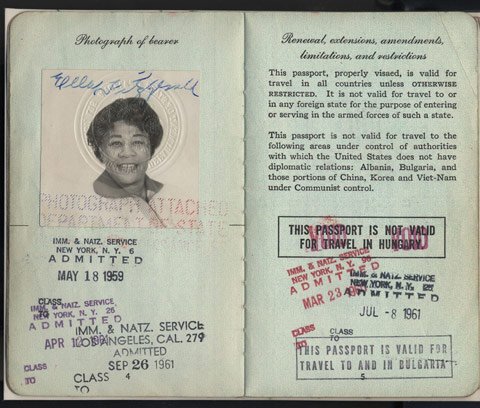 Photograph of bearer
Ella Fitzgerald
PHOTOGRAPH ATTACHED
DEPARTMENT OF STATE
IMM. & NATZ. SERVICE
NEW YORK, N. Y. 6
ADMITTED
MAY 18 1959
CLASS
TO
IMM. & NATZ. SERVICE
NEW YORK, N.Y. 26
ADMITTED
APR
CLASS
TO
IMM. & NATZ. SERVICE
LOS ANGELES, CAL. 279
ADMITTED
SEP 26 1961
CLASS
TO
4
Renewal, extensions, amendments,
limitations, and restrictions
This passport, properly visaed, is valid for
travel in all countries unless OTHERWISE
RESTRICTED. It is not valid for travel to or
in any foreign state for the purpose of entering
or serving in the armed forces of such a state.
This passport is not valid for travel to the
following areas under control of authorities
with which the United States does not have
diplomatic relations: Albania, Bulgaria, and
those portions of China, Korea and Viet-Nam
under Communist control.
THIS PASSPORT IS NOT VALID
FOR TRAVEL IN HUNGARY.
VOID VOID
IMM. & NATZ. SERVICE
NEW YORK, N. Y. 98
ADMITTED
MAR 23
CLASS
TO
IMM. & NATZ. SERVICE
NEW YORK, N.Y.
ADMITTED
JUL - 8 1961
CLASS
TO
THIS PASSPORT IS VALID FOR
TRAVEL TO AND IN BULGARIA
5